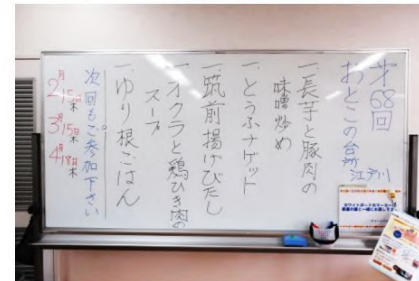 才68回
おとこの台所
江戸川
一、長芋と豚肉の
味噌炒め
一、とうふナゲット
一、筑前揚げびたし
一、オクラと鶏ひき肉の
スープ
一、ゆり根ごはん
次回もご参加下さい
2月15日木
3月15日木
4月18日木
ホワイトボードのマーカーは